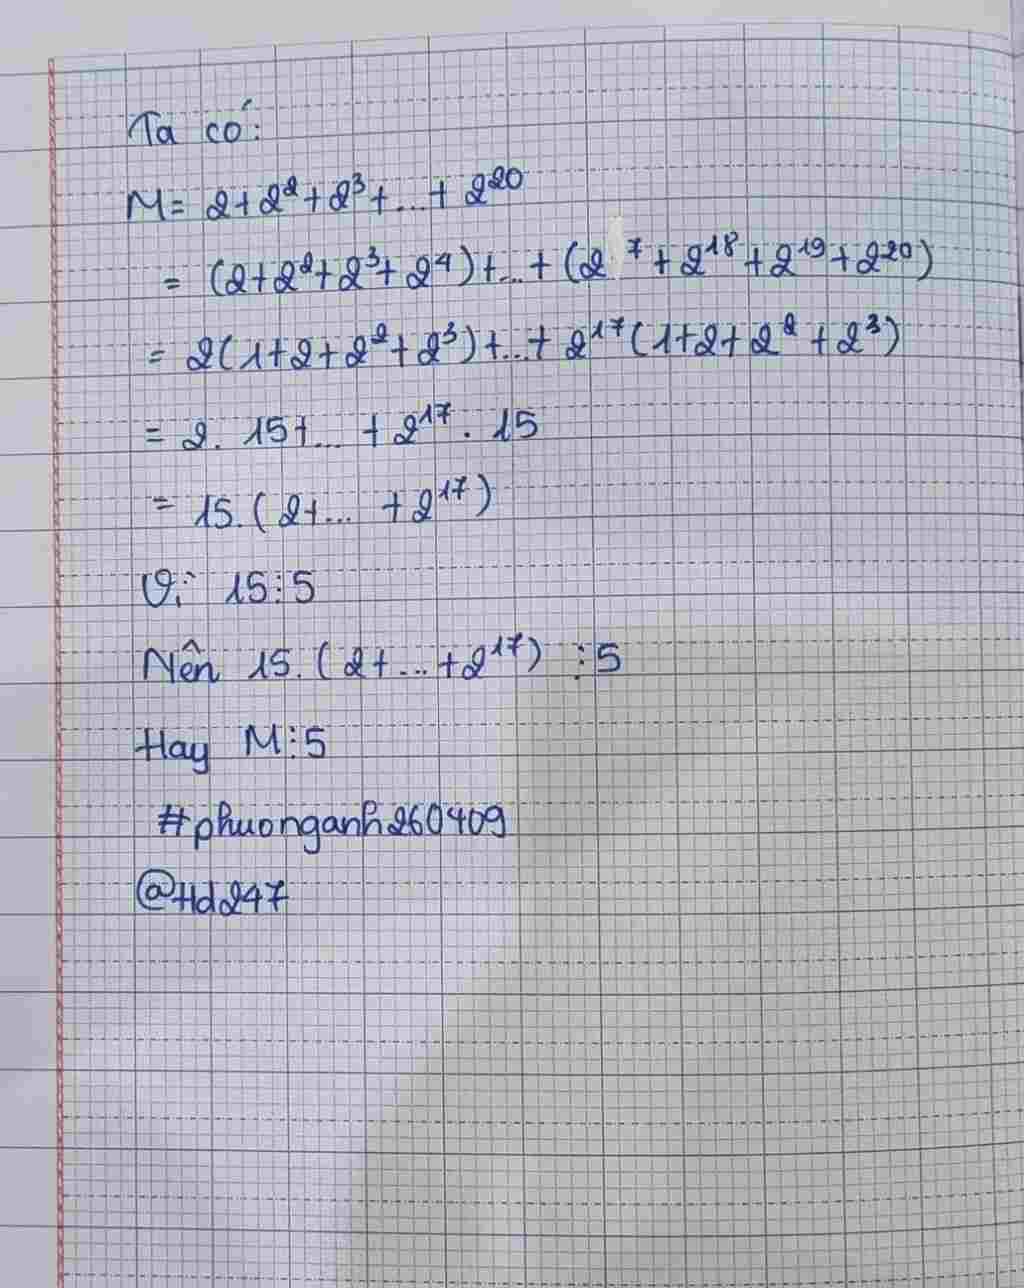 Ta có:
M = 2 + 2² + 2³ + ... + 2²⁰
= (2 + 2² + 2³ + 2⁴) + ... + (2 ⁷ + 2¹⁸ + 2¹⁹ + 2²⁰)
= 2(1 + 2 + 2² + 2³) + ... + 2¹⁷(1 + 2 + 2² + 2³)
= 2. 15 + ... + 2¹⁷. 15
= 15.(2 + ... + 2¹⁷)
Vì 15 ⋮ 5
Nên 15.(2 + ... + 2¹⁷) ⋮ 5
Hay M ⋮ 5
#phuonganh260409
@Hd247